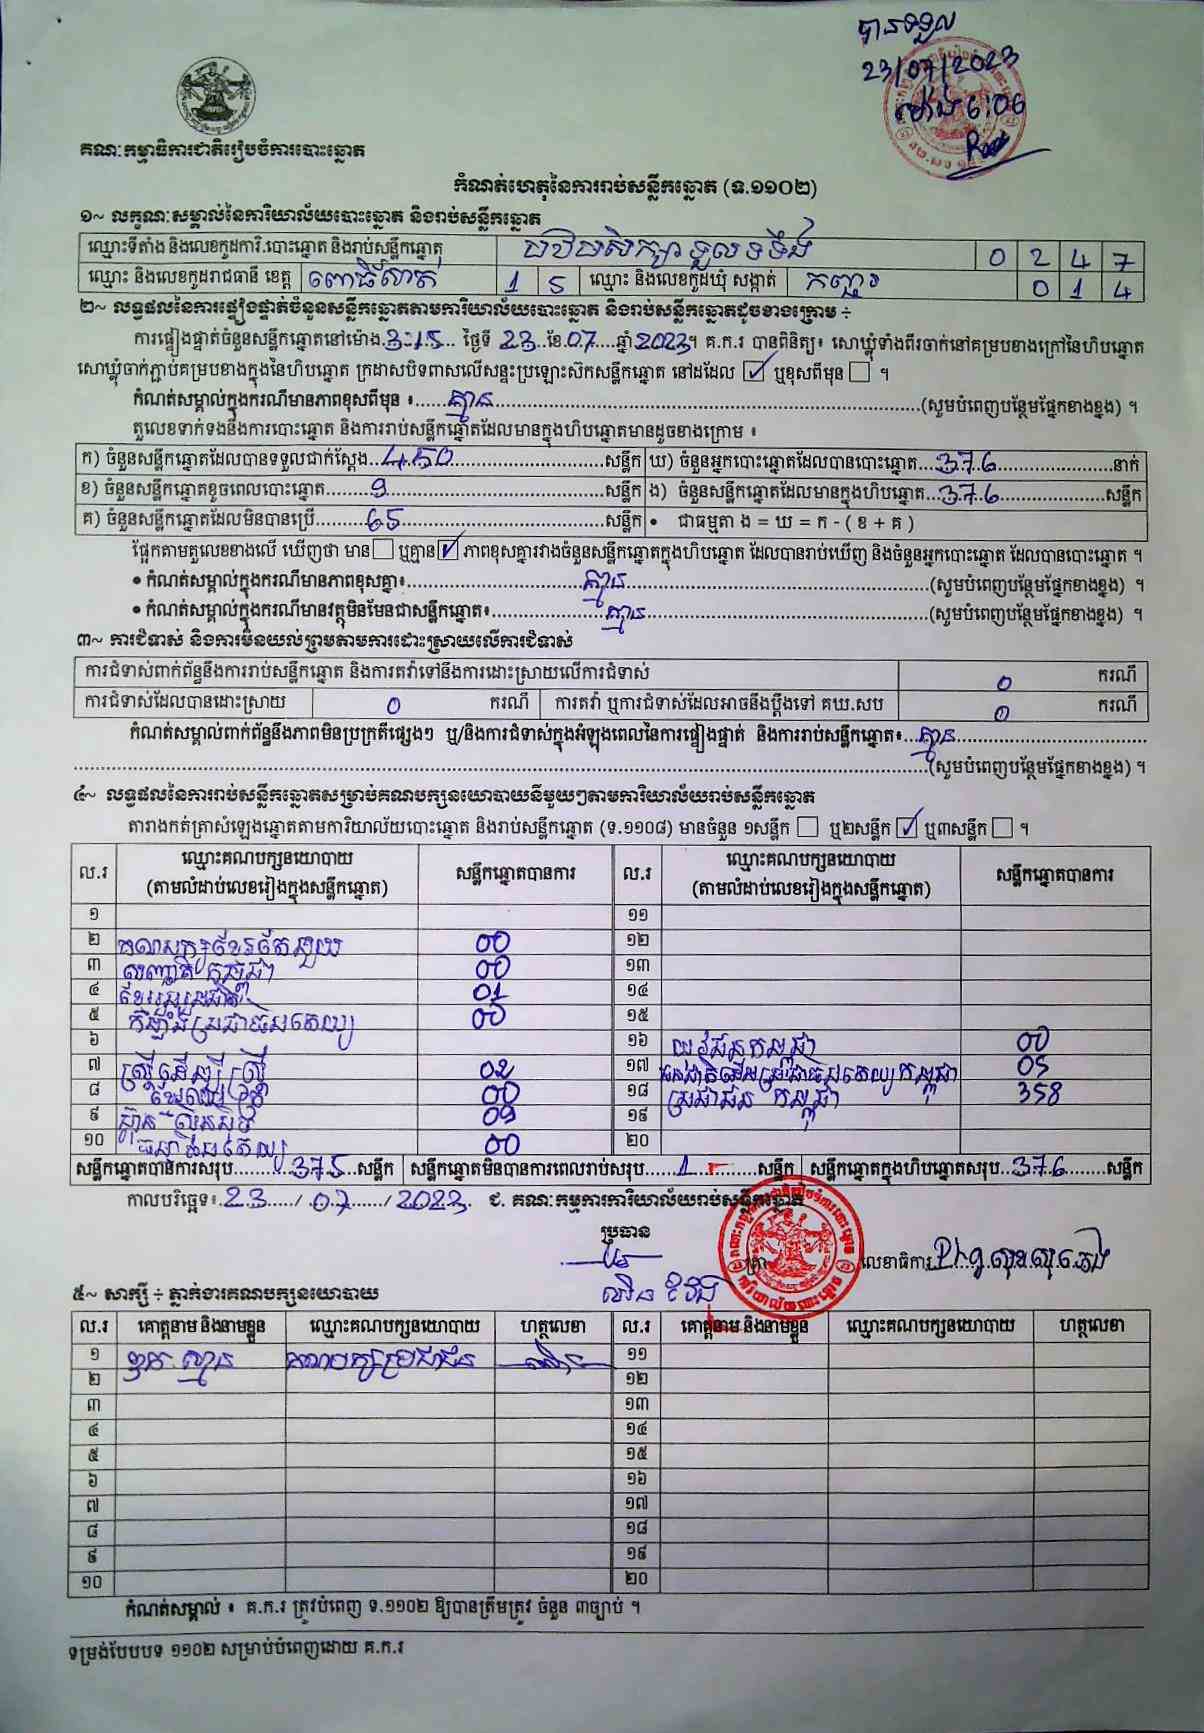 បានទទួល
23/07/2023
ម៉ោង 6:06
គណៈកម្មាធិការជាតិរៀបចំការបោះឆ្នោត
កំណត់ហេតុនៃការរាប់សន្លឹកឆ្នោត (ទ.១១០២)
១~ លក្ខណៈសម្គាល់នៃការិយាល័យបោះឆ្នោត និងរាប់សន្លឹកឆ្នោត
ឈ្មោះទីតាំង និងលេខកូដការិ.បោះឆ្នោត និងរាប់សន្លឹកឆ្នោត បឋមសិក្សា ទួលទទឹង 0 2 4 7
ឈ្មោះ និងលេខកូដរាជធានី ខេត្ត ពោធិ៍សាត់ 1 5 ឈ្មោះ និងលេខកូដឃុំ សង្កាត់ កញ្ជរ 0 1 4
២~ លទ្ធផលនៃការផ្ទៀងផ្ទាត់ចំនួនសន្លឹកឆ្នោតតាមការិយាល័យបោះឆ្នោត និងរាប់សន្លឹកឆ្នោតដូចខាងក្រោម ÷
ការផ្ទៀងផ្ទាត់ចំនួនសន្លឹកឆ្នោតនៅម៉ោង.3:15... ថ្ងៃទី 23..ខែ.07....ឆ្នាំ 2023។ គ.ក.រ បានពិនិត្យ៖ សោឃ្លុំទាំងពីរចាក់នៅគម្របខាងក្រៅនៃហិបឆ្នោត
សោឃ្លុំចាក់ភ្ជាប់គម្របខាងក្នុងនៃហិបឆ្នោត ក្រដាសបិទពាសលើសន្ទះប្រឡោះសៀកសន្លឹកឆ្នោត នៅដដែល ☑ ឬខុសពីមុន ☐ ។
កំណត់សម្គាល់ក្នុងករណីមានភាពខុសពីមុន ៖......គ្មាន......(សូមបំពេញបន្ថែមផ្នែកខាងខ្នង) ។
តួលេខទាក់ទងនឹងការបោះឆ្នោត និងការរាប់សន្លឹកឆ្នោតដែលមានក្នុងហិបឆ្នោតមានដូចខាងក្រោម ៖
ក) ចំនួនសន្លឹកឆ្នោតដែលបានទទួលជាក់ស្តែង..450......សន្លឹក ឃ) ចំនួនអ្នកបោះឆ្នោតដែលបានបោះឆ្នោត...376......នាក់
ខ) ចំនួនសន្លឹកឆ្នោតខូចពេលបោះឆ្នោត......9......សន្លឹក ង) ចំនួនសន្លឹកឆ្នោតដែលមានក្នុងហិបឆ្នោត...376......សន្លឹក
គ) ចំនួនសន្លឹកឆ្នោតដែលមិនបានប្រើ......65......សន្លឹក • ជាធម្មតា ង = ឃ = ក - ( ខ + គ )
ផ្អែកតាមតួលេខខាងលើ ឃើញថា មាន ☐ ឬគ្មាន ☑ ភាពខុសគ្នារវាងចំនួនសន្លឹកឆ្នោតក្នុងហិបឆ្នោត ដែលបានរាប់ឃើញ និងចំនួនអ្នកបោះឆ្នោត ដែលបានបោះឆ្នោត ។
• កំណត់សម្គាល់ក្នុងករណីមានភាពខុសគ្នា៖......គ្មាន......(សូមបំពេញបន្ថែមផ្នែកខាងខ្នង) ។
• កំណត់សម្គាល់ក្នុងករណីមានវត្ថុមិនមែនជាសន្លឹកឆ្នោត៖......គ្មាន......(សូមបំពេញបន្ថែមផ្នែកខាងខ្នង) ។
៣~ ការជំទាស់ និងការមិនយល់ព្រមតាមការដោះស្រាយលើការជំទាស់
ការជំទាស់ពាក់ព័ន្ធនឹងការរាប់សន្លឹកឆ្នោត និងការតវ៉ាទៅនឹងការដោះស្រាយលើការជំទាស់ 0 ករណី
ការជំទាស់ដែលបានដោះស្រាយ 0 ករណី ការតវ៉ា ឬការជំទាស់ដែលអាចនឹងប្តឹងទៅ គឃ.សប 0 ករណី
កំណត់សម្គាល់ពាក់ព័ន្ធនឹងភាពមិនប្រក្រតីផ្សេងៗ ឬ/និងការជំទាស់ក្នុងអំឡុងពេលនៃការផ្ទៀងផ្ទាត់ និងការរាប់សន្លឹកឆ្នោត៖...គ្មាន......
......(សូមបំពេញបន្ថែមផ្នែកខាងខ្នង) ។
៤~ លទ្ធផលនៃការរាប់សន្លឹកឆ្នោតសម្រាប់គណបក្សនយោបាយនីមួយៗតាមការិយាល័យរាប់សន្លឹកឆ្នោត
តារាងកត់ត្រាសំឡេងឆ្នោតតាមការិយាល័យបោះឆ្នោត និងរាប់សន្លឹកឆ្នោត (ទ.១១០៨) មានចំនួន ១សន្លឹក ☐ ឬ២សន្លឹក ☑ ឬ៣សន្លឹក ☐ ។
ល.រ ឈ្មោះគណបក្សនយោបាយ (តាមលំដាប់លេខរៀងក្នុងសន្លឹកឆ្នោត) សន្លឹកឆ្នោតបានការ ល.រ ឈ្មោះគណបក្សនយោបាយ (តាមលំដាប់លេខរៀងក្នុងសន្លឹកឆ្នោត) សន្លឹកឆ្នោតបានការ
១ ១១
២ 00 ១២
៣ 00 ១៣
៤ 01 ១៤
៥ 00 ១៥
៦ ១៦ យុវជនកម្ពុជា 00
៧ ស្ត្រីដើម្បីស្ត្រី 02 ១៧ ជនជាតិដើមប្រជាធិបតេយ្យកម្ពុជា 05
៨ 00 ១៨ ប្រជាជន កម្ពុជា 358
៩ 09 ១៩
១០ 00 ២០
សន្លឹកឆ្នោតបានការសរុប......375...សន្លឹក សន្លឹកឆ្នោតមិនបានការពេលរាប់សរុប......1......សន្លឹក សន្លឹកឆ្នោតក្នុងហិបឆ្នោតសរុប...376......សន្លឹក
កាលបរិច្ឆេទ៖.23...../ 07....../ 2023. ជ. គណៈកម្មការការិយាល័យរាប់សន្លឹកឆ្នោត
ប្រធាន
ត្រា
លេខាធិការ
៥~ សាក្សី ÷ ភ្នាក់ងារគណបក្សនយោបាយ
ល.រ គោត្តនាម និងនាមខ្លួន ឈ្មោះគណបក្សនយោបាយ ហត្ថលេខា ល.រ គោត្តនាម និងនាមខ្លួន ឈ្មោះគណបក្សនយោបាយ ហត្ថលេខា
១ គណបក្សប្រជាជន ១១
២ ១២
៣ ១៣
៤ ១៤
៥ ១៥
៦ ១៦
៧ ១៧
៨ ១៨
៩ ១៩
១០ ២០
កំណត់សម្គាល់ ៖ គ.ក.រ ត្រូវបំពេញ ទ.១១០២ ឱ្យបានត្រឹមត្រូវ ចំនួន ៣ច្បាប់ ។
ទម្រង់បែបបទ ១១០២ សម្រាប់បំពេញដោយ គ.ក.រ